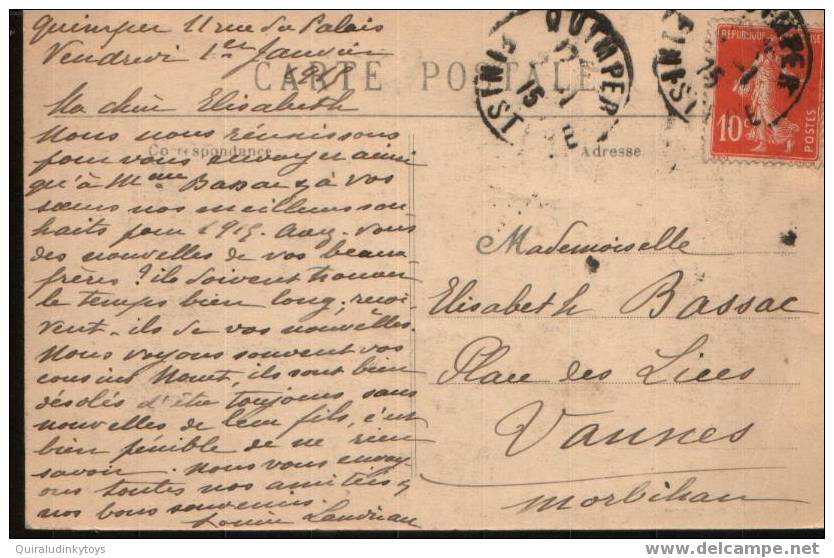 Quimper 11 rue du Palais
Vendredi 1er Janvier
1915
CARTE POSTALE
Ma chère Elisabeth
Nous nous réunissons
pour vous envoyer ainsi
Correspondance
qu'à Mme Bassac & à vos
sœurs nos meilleurs sou
haits pour 1915. Avez-vous
des nouvelles de vos beaux
frères? ils doivent trouver
le temps bien long, reçoi
vent-ils de vos nouvelles.
Nous voyons souvent vos
cousins, ils sont bien
désolés d'être toujours sans
nouvelles de leur fils, c'est
bien pénible de ne rien
savoir. Nous vous envoy
ons toutes nos amitiés &
nos bons souvenirs.
Louise
QUIMPER
FINIST
15
QUIMPER
FINIST
15
10
POSTES
Adresse
Mademoiselle
Elisabeth Bassac
Place des Lices
Vannes
Morbihan
Quiraludinkytoys
delcampe.net